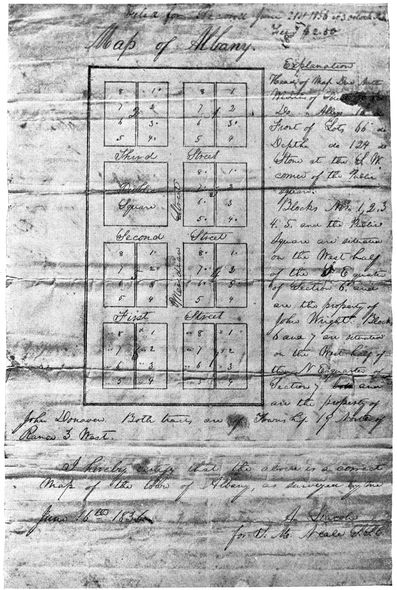 Filed for Record June 21st 1836 at 3 o'clock
Fee $2.50
Map of Albany.
8 1
7 2
6 3
5 4
8 1
7 2
6 3
5 4
Third Street
Public
Square
8 1
7 2
6 3
5 4
Meridian Street
Second Street
8 1
7 2
6 3
5 4
8 1
7 2
6 3
5 4
First Street
8 1
7 2
6 3
5 4
8 1
7 2
6 3
5 4
Explanation
Head of Map Due North
Width of
Do Alleys
Front of Lots 66 do
Depths do 124 do
Stone at the S.W.
corner of the Public
Square.
Blocks Nos. 1, 2, 3
4, 5, and the Public
Square are situated
on the West half
of the S E quarter
of Section 6 and
are the property of
John Wright. Blocks
6 and 7 are situated
on the West half of
the N E quarter of
Section 7, and
are the property of
John Donavan. Both tracts are of Township 19 North of
Range 3 West.
I hereby certify that the above is a correct
Map of the town of Albany, as surveyed by me
June 16th 1836.
A. Lincoln
for T. M. Neale